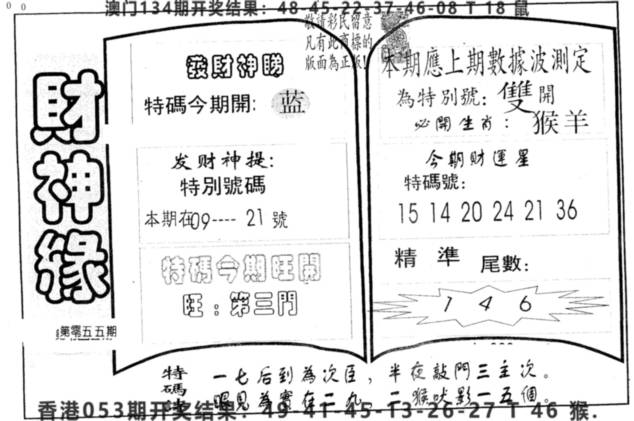 澳门134期开奖结果：48-45-22-37-46-08 T 18 鼠
敬請彩民留意
凡有此商標的
版面為正版!
財神緣
第零五五期
發財神賜
特碼今期開: 蓝
发财神提:
特別號碼
本期在09----21號
特碼今期旺開
旺:第三門
本期應上期數據波測定
為特別號:雙開
必開生肖:猴羊
今期财運星
特碼號:
15 14 20 24 21 36
精準 尾數:
1 4 6
特碼
一七后到為次臣，半夜敲門三主次。
眼見為實在二九，二猴吠影一五個。
香港053期开奖结果：49-41-45-13-26-27 T 46 猴.